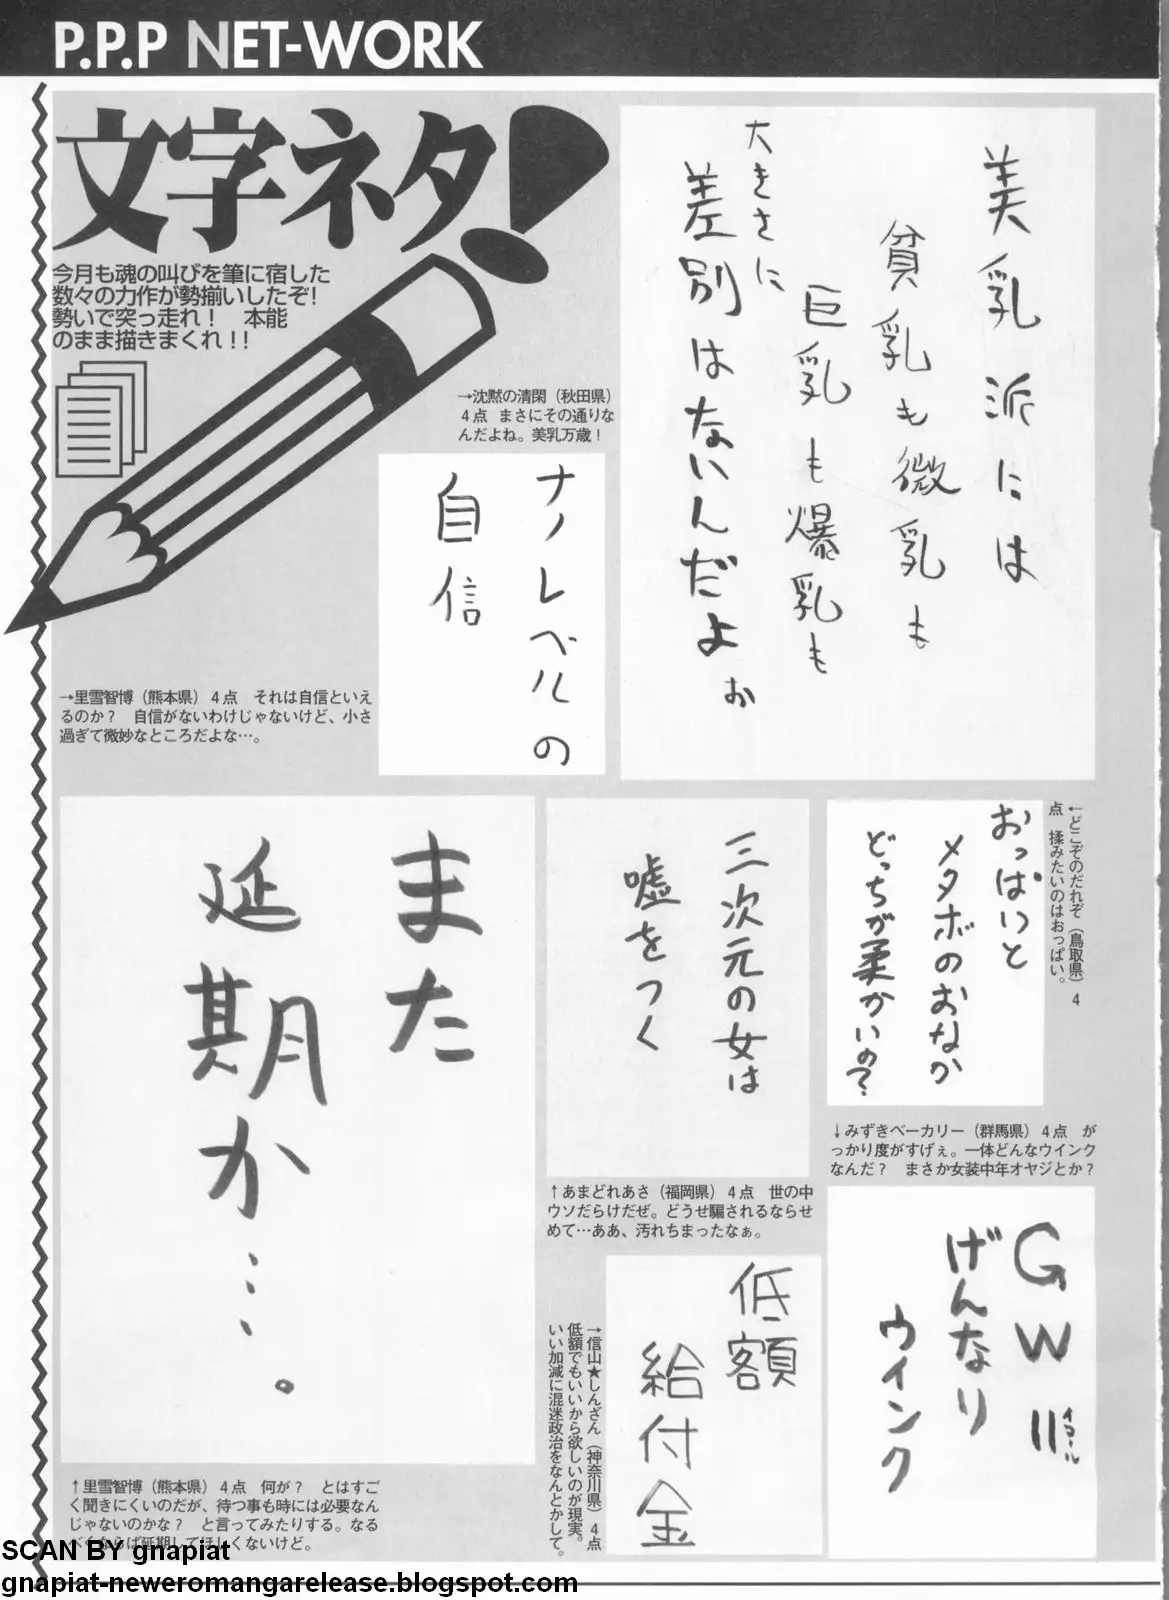 P.P.P NET-WORK
文字ネタ!
今月も魂の叫びを筆に宿した
数々の力作が勢揃いしたぞ!
勢いで突っ走れ! 本能
のまま描きまくれ!!
美乳派には
貧乳も微乳も
巨乳も爆乳も
大きさに
差別はないんだよぉ
→沈黙の清閑（秋田県）
4点 まさにその通りな
んだよね。美乳万歳!
ナノレベルの
自信
→里雪智博（熊本県）4点 それは自信といえ
るのか? 自信がないわけじゃないけど、小さ
過ぎて微妙なところだよな…。
←どこぞのだれぞ（鳥取県）4
点 揉みたいのはおっぱい。
おっぱいと
メタボのおなか
どっちが柔かいの?
三次元の女は
嘘をつく
また
延期か…。
↓みずきベーカリー（群馬県）4点 が
っかり度がすげぇ。一体どんなウインク
なんだ? まさか女装中年オヤジとか?
↑あまどれあさ（福岡県）4点 世の中
ウソだらけだぜ。どうせ騙されるならせ
めて…ああ、汚れちまったなぁ。
GW=
イコール
げんなり
ウインク
低額
給付金
→信山★しんざん（神奈川県）4点
低額でもいいから欲しいのが現実。
いい加減に混迷政治をなんとかして。
↑里雪智博（熊本県）4点 何が? とはすご
く聞きにくいのだが、待つ事も時には必要なん
じゃないのかな? と言ってみたりする。なる
べくならば延期してほしくないけど。
SCAN BY gnapiat
gnapiat-neweromangarelease.blogspot.com